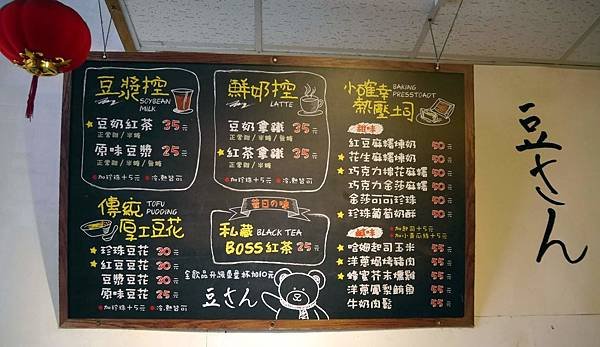 豆漿控
SOYBEAN
MILK
豆奶紅茶 35元
正常甜/半糖
原味豆漿 25元
正常甜/半糖/無糖
加珍珠+5元 冷.熱皆可
鮮奶控
LATTE
豆奶拿鐵 35元
正常甜/半糖/無糖
紅茶拿鐵 35元
正常甜/半糖
加珍珠+5元 冷.熱皆可
小確幸
BAKING
PRESSTOADT
熱壓土司
甜味
紅豆麻糬煉奶 50元
花生麻糬煉奶 50元
巧克力棉花麻糬 50元
巧克力金莎麻糬 50元
金莎可可珍珠 50元
珍珠葡萄奶酥 50元
鹹味
加起司+5元
加小黃瓜絲+5元
哈姆起司玉米 55元
洋蔥燒烤豬肉 55元
蜂蜜芥末燻雞 55元
洋蔥鳳梨鮪魚 55元
牛奶肉鬆 55元
傳統
TOFU
PUDDING
厚工豆花
珍珠豆花 30元
紅豆豆花 30元
豆漿豆花 30元
原味豆花 25元
加珍珠+5元 冷.熱皆可
昔日の味
私藏 BLACK TEA
BOSS紅茶 25元
全飲品升級重量杯加10元
豆さん
豆さん